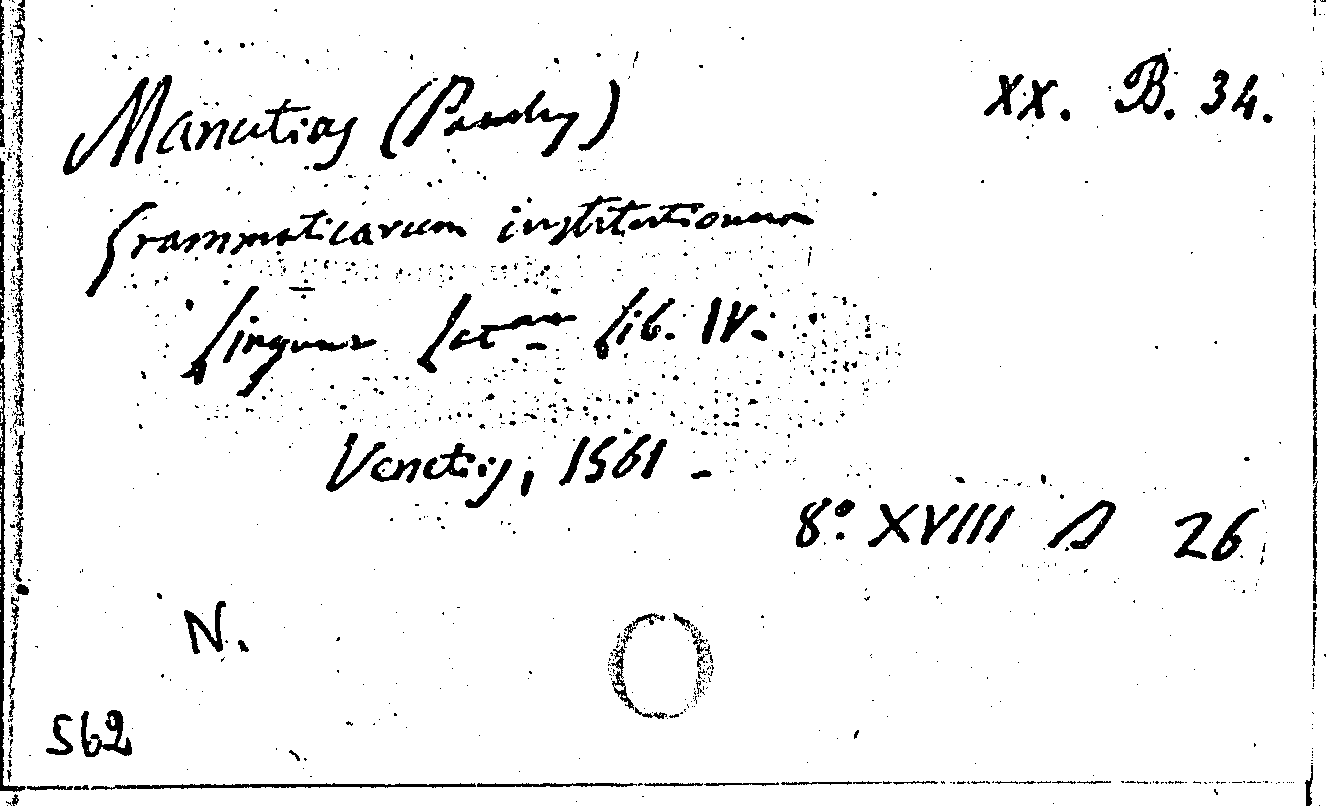 Manutius (Paulus) XX. B. 34.
Grammaticarum institutionum
linguae latinae lib. IV.
Venetiis, 1561 -
8º XVIII A 26
N.
562